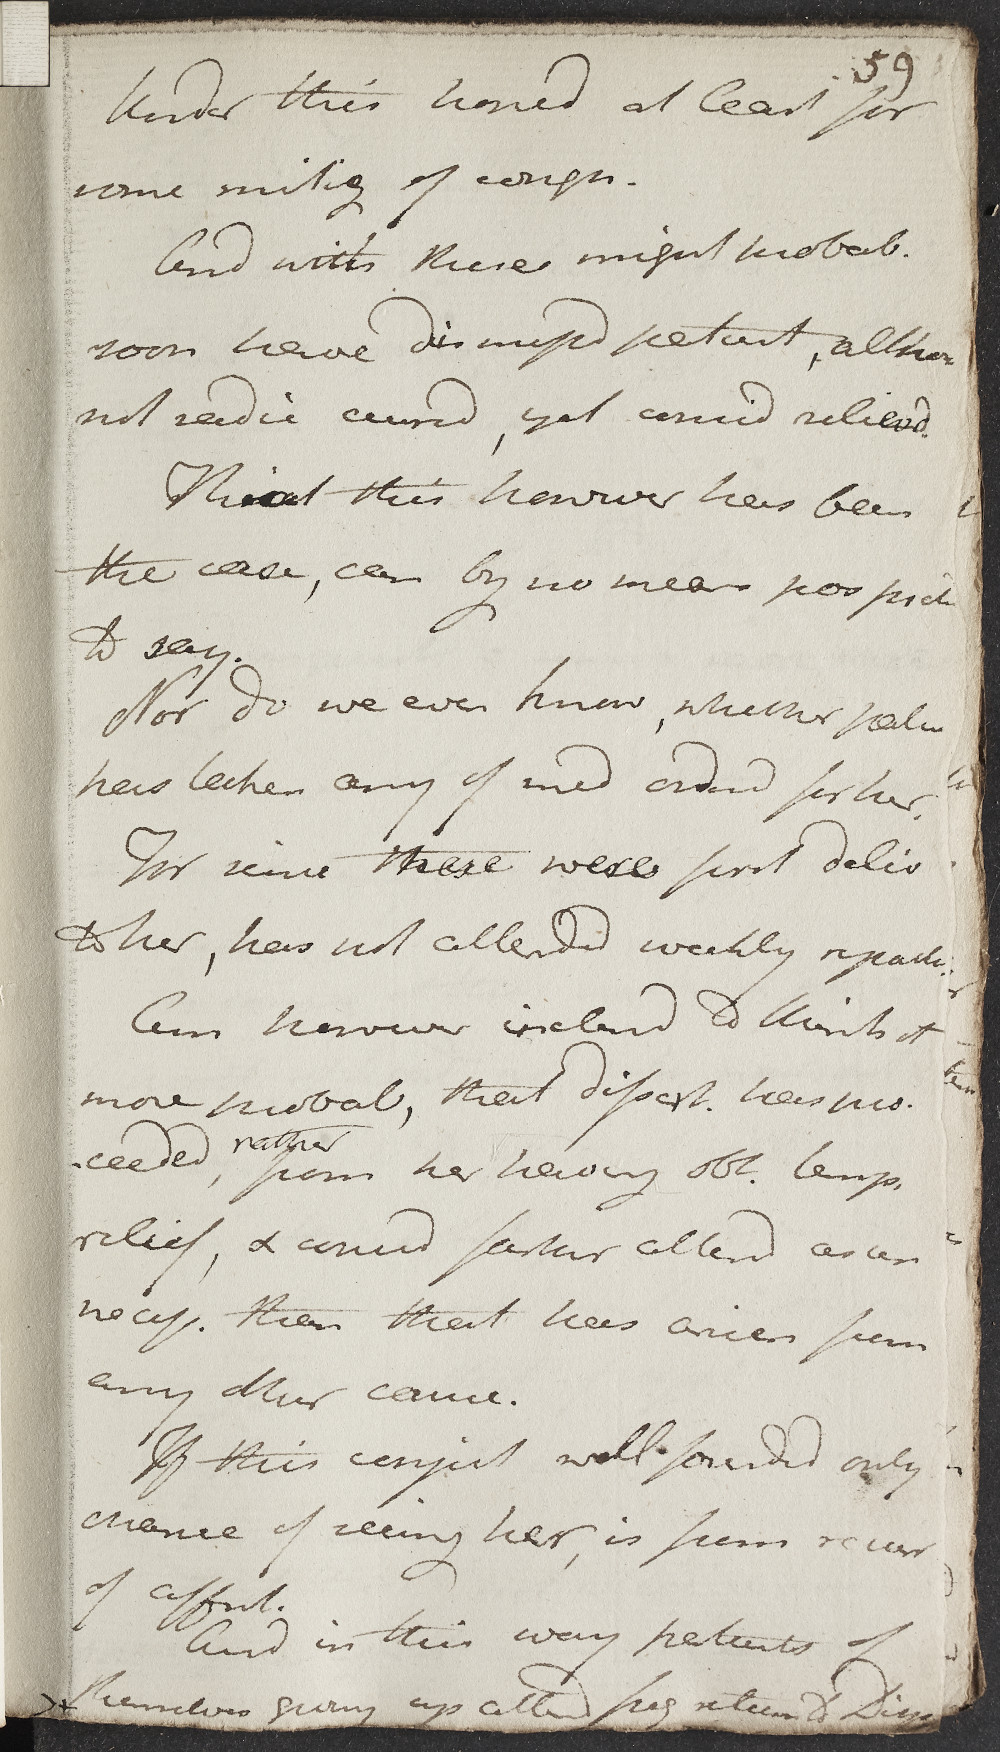 59
Under this hoped at least for
some mitig of cough.
And with these might probab.
soon have dismissd patient, altho
not radic cured, yet consid relievd.
That this however has been
the case, can by no means possible
to say.
Nor do we even know, whether patien
has taken any of med ordered for her.
For since these were first deliv
to her, has not attended weekly
Am however inclend to think it
more probab, that dissert. has pro-
ceeded, rather from her having obt. temp.
relief, & consid farther attend as un
necess. than that has arisen from
any other cause.
If this conject well founded only
chance of seeing her, is from recur
of afflict.
And in this way patients of
themselves giving up attend freq return to Disp